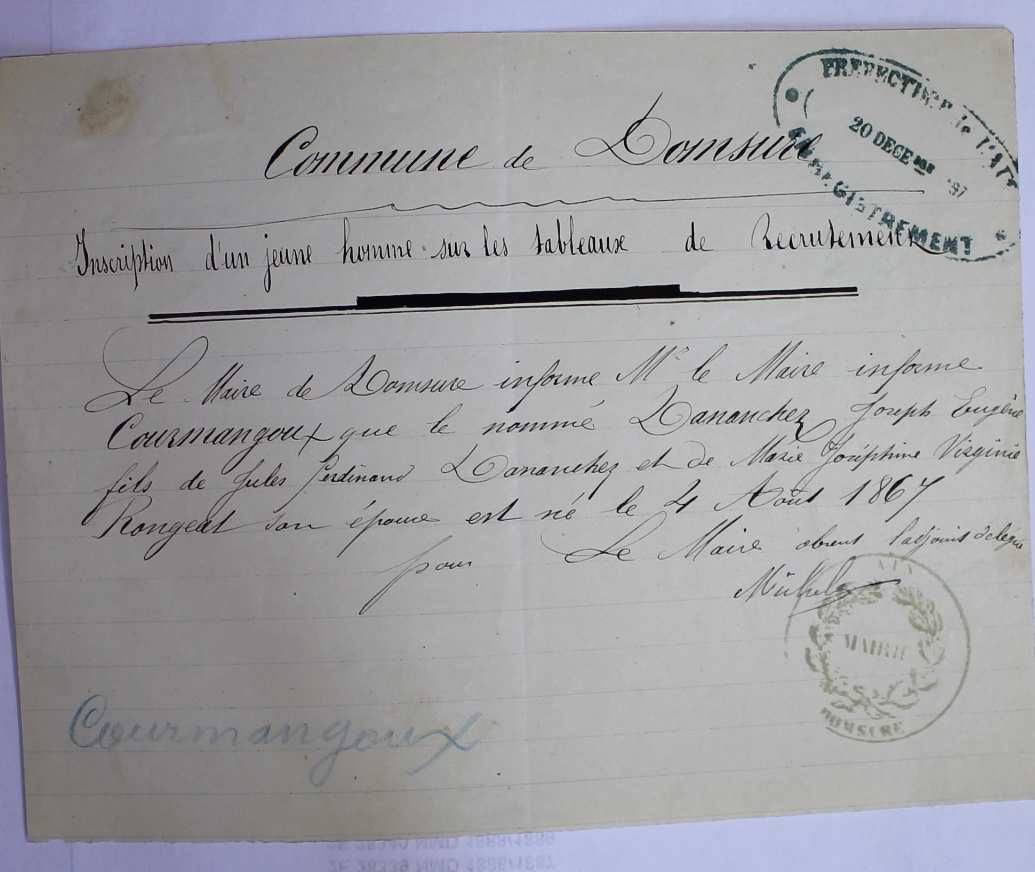 PREFECTURE de l'AIN
20 DECE 87
ENREGISTREMENT
Commune de Domsure
Inscription d'un jeune homme sur les tableaux de Recrutement
Le Maire de Domsure informe Mr le Maire informe
Courmangoux que le nommé Dananchez Joseph Eugène
fils de Jules Ferdinand Dananchez et de Marie Joséphine Virginie
Rongeat son épouse est né le 4 Août 1867
pour Le Maire absent l'adjoint délégué
Michel
AIN
MAIRIE
DOMSURE
Courmangoux